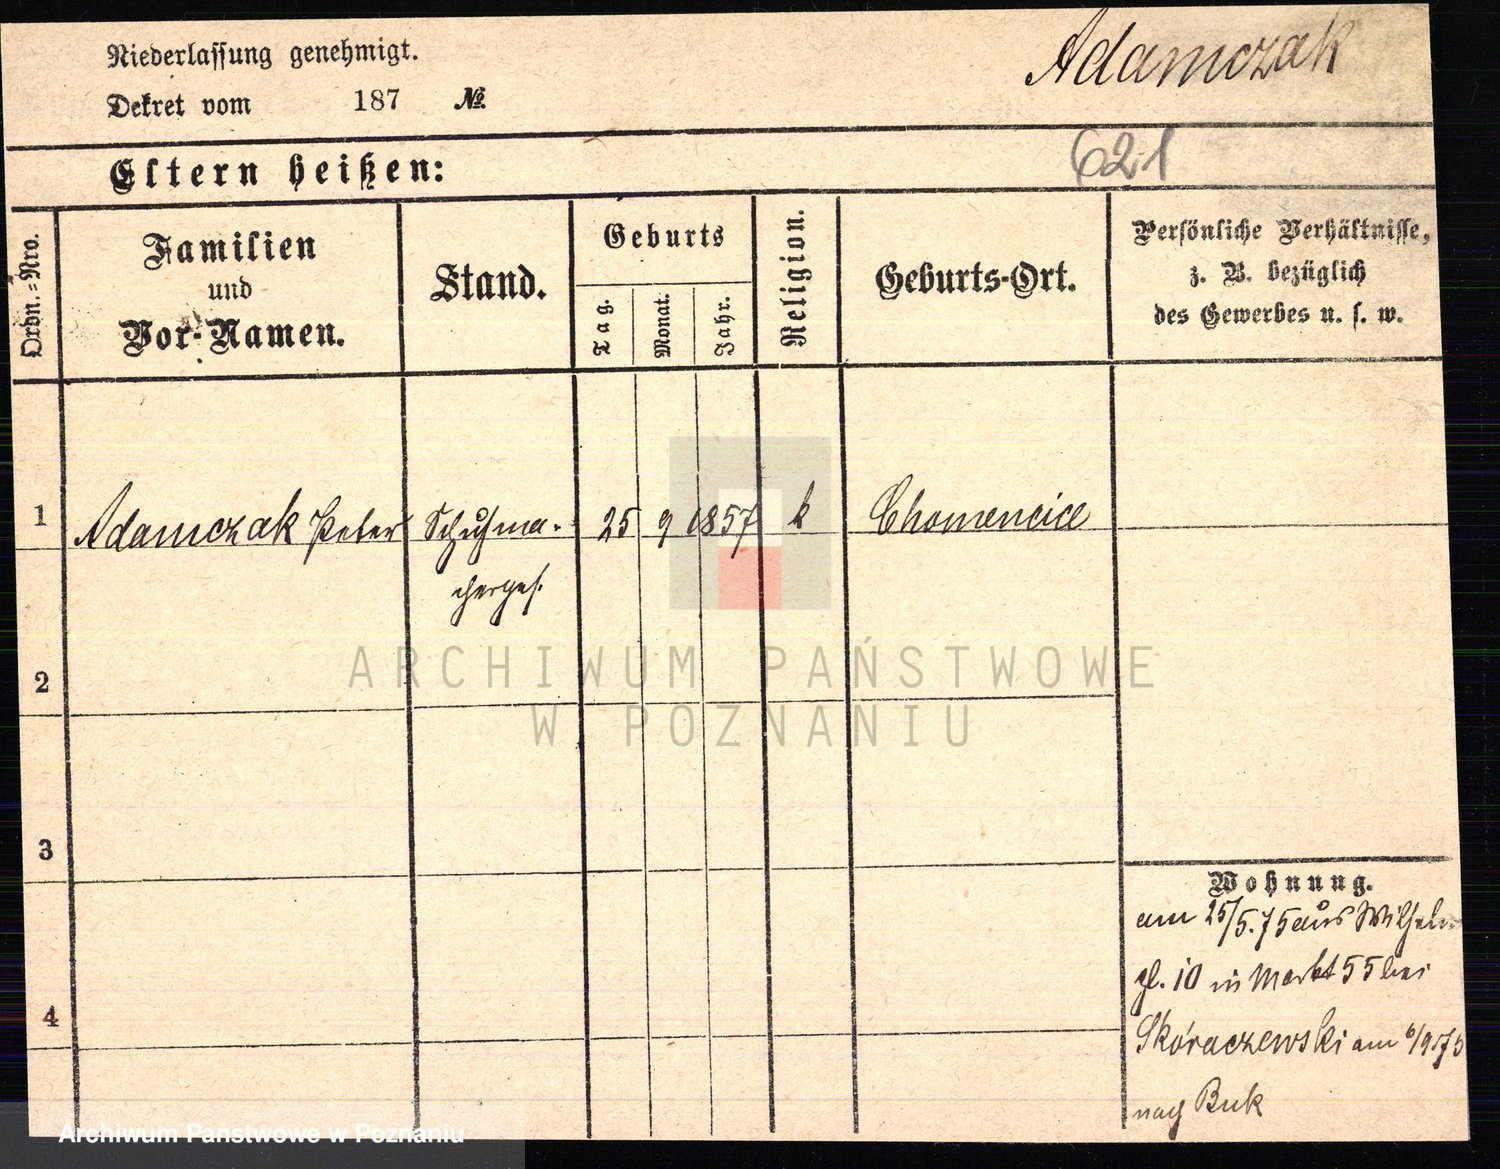 Niederlassung genehmigt.
Adamczak
Dekret vom 187 №
Eltern heißen:
621
Ordn.=Nro.
Familien
und
Vor-Namen.
Stand.
Geburts
Tag.
Monat.
Jahr.
Religion.
Geburts-Ort.
Persönliche Verhältnisse,
z. B. bezüglich
des Gewerbes u. s. w.
1 Adamczak Peter Schuhma- 25 9 1857 k Chomencice
cherges.
2
3
4
Wohnung.
am 25/5.75 aus Wilhelm
pl. 10 in Markt 55 bei
Skóraczewski am 6/9
nach Buk
ARCHIWUM PAŃSTWOWE
W POZNANIU
Archiwum Państwowe w Poznaniu